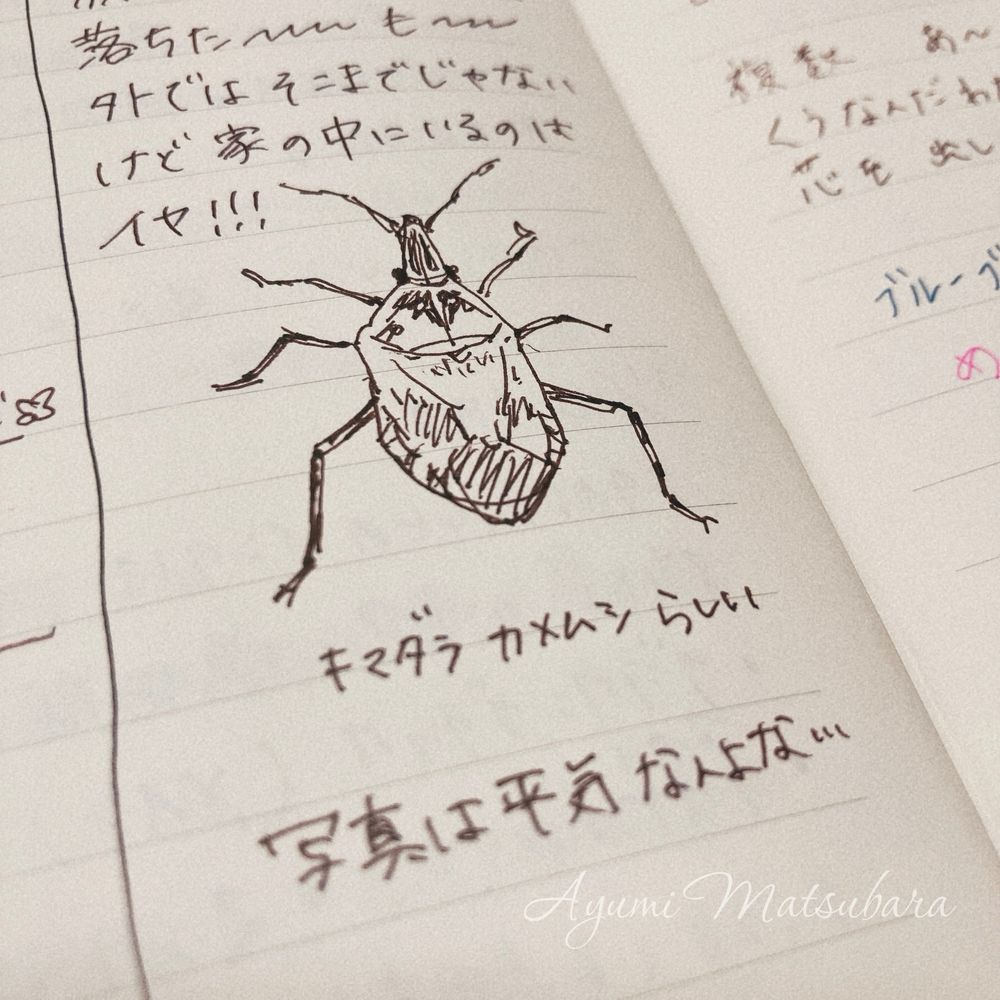 落ちた〜〜 も〜〜
外では そこまでじゃない
けど 家の中にいるのは
イヤ!!!
キマダラ カメムシ らしい
写真は平気なんよな…
複数 あ〜
くうなんだわ
芯を 出し
ブルーブ
め
Ayumi Matsubara